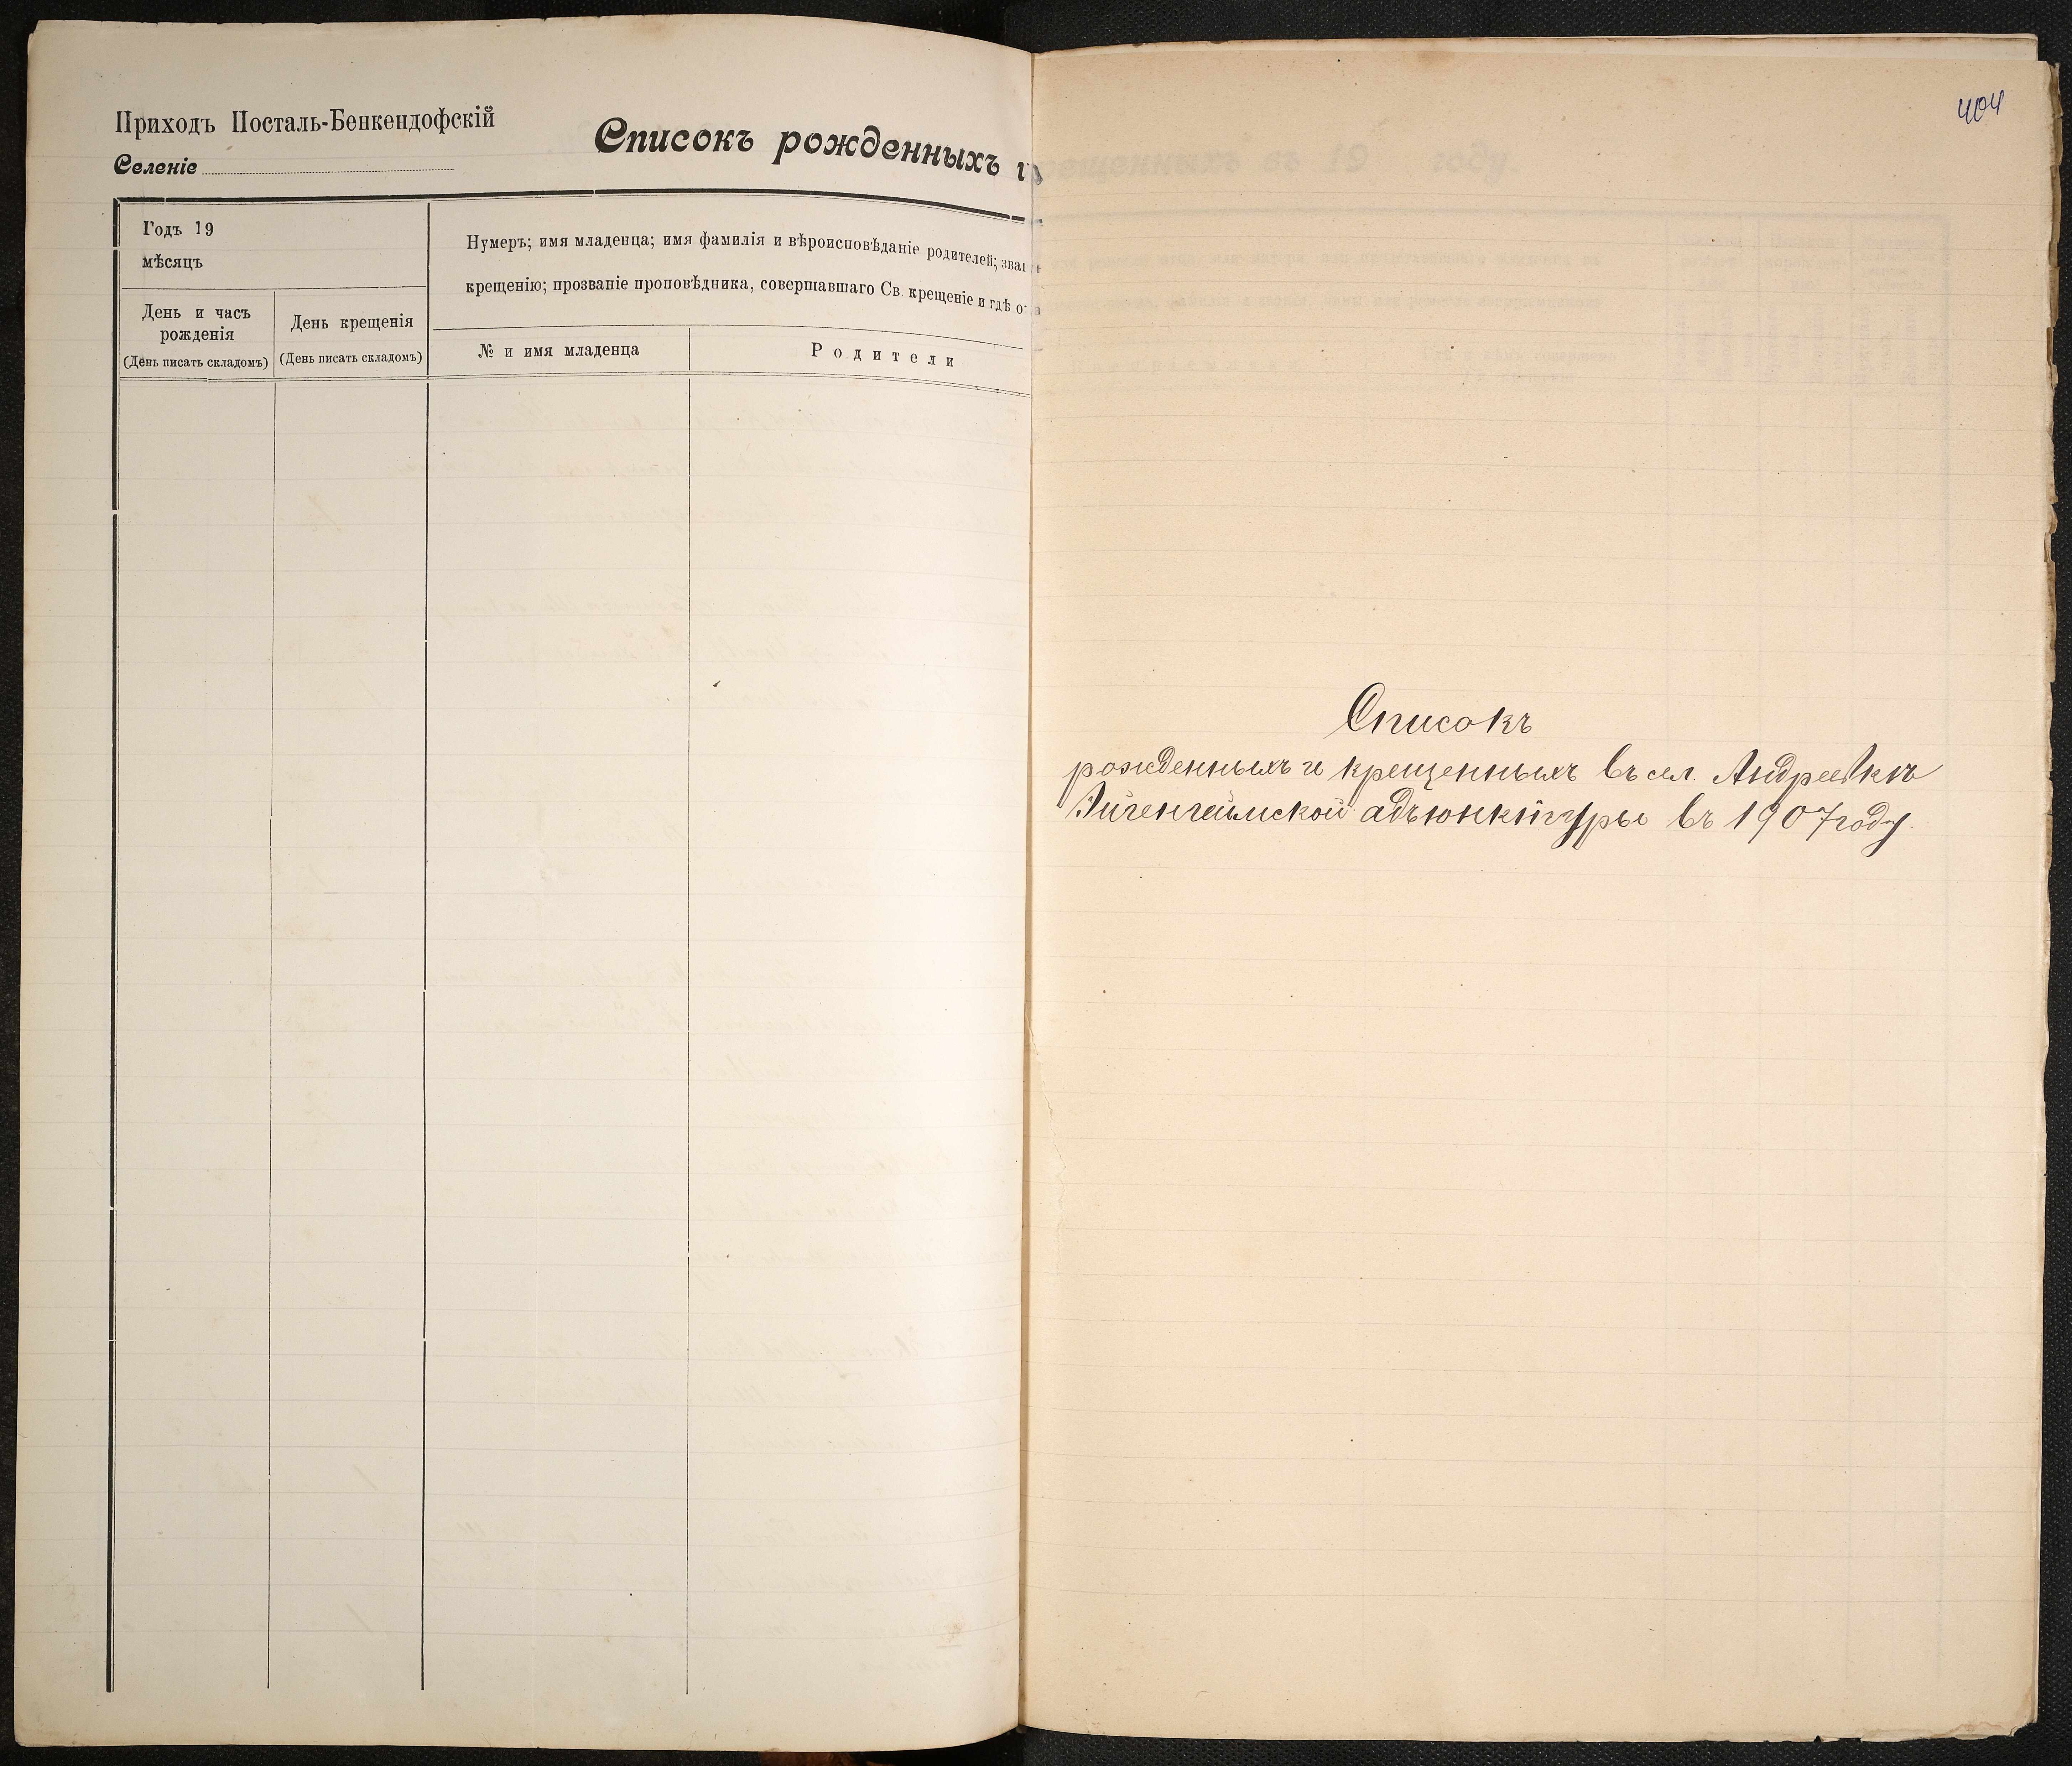 Приходъ Посталь-Бенкендофскій
Селеніе
Списокъ рожденныхъ
Годъ 19
мѣсяцъ
День и часъ рожденія
(День писать складомъ)
День крещенія
(День писать складомъ)
Нумеръ; имя младенца; имя фамилія и вѣроисповѣданіе родителей;
крещенію; прозваніе проповѣдника, совершавшаго Св. крещеніе и гдѣ
№ и имя младенца
Родители
404
Списокъ
рожденныхъ и крещенныхъ въ сел. Андреевкѣ
Эйгенгеймской адъюнктуры въ 1907 году.